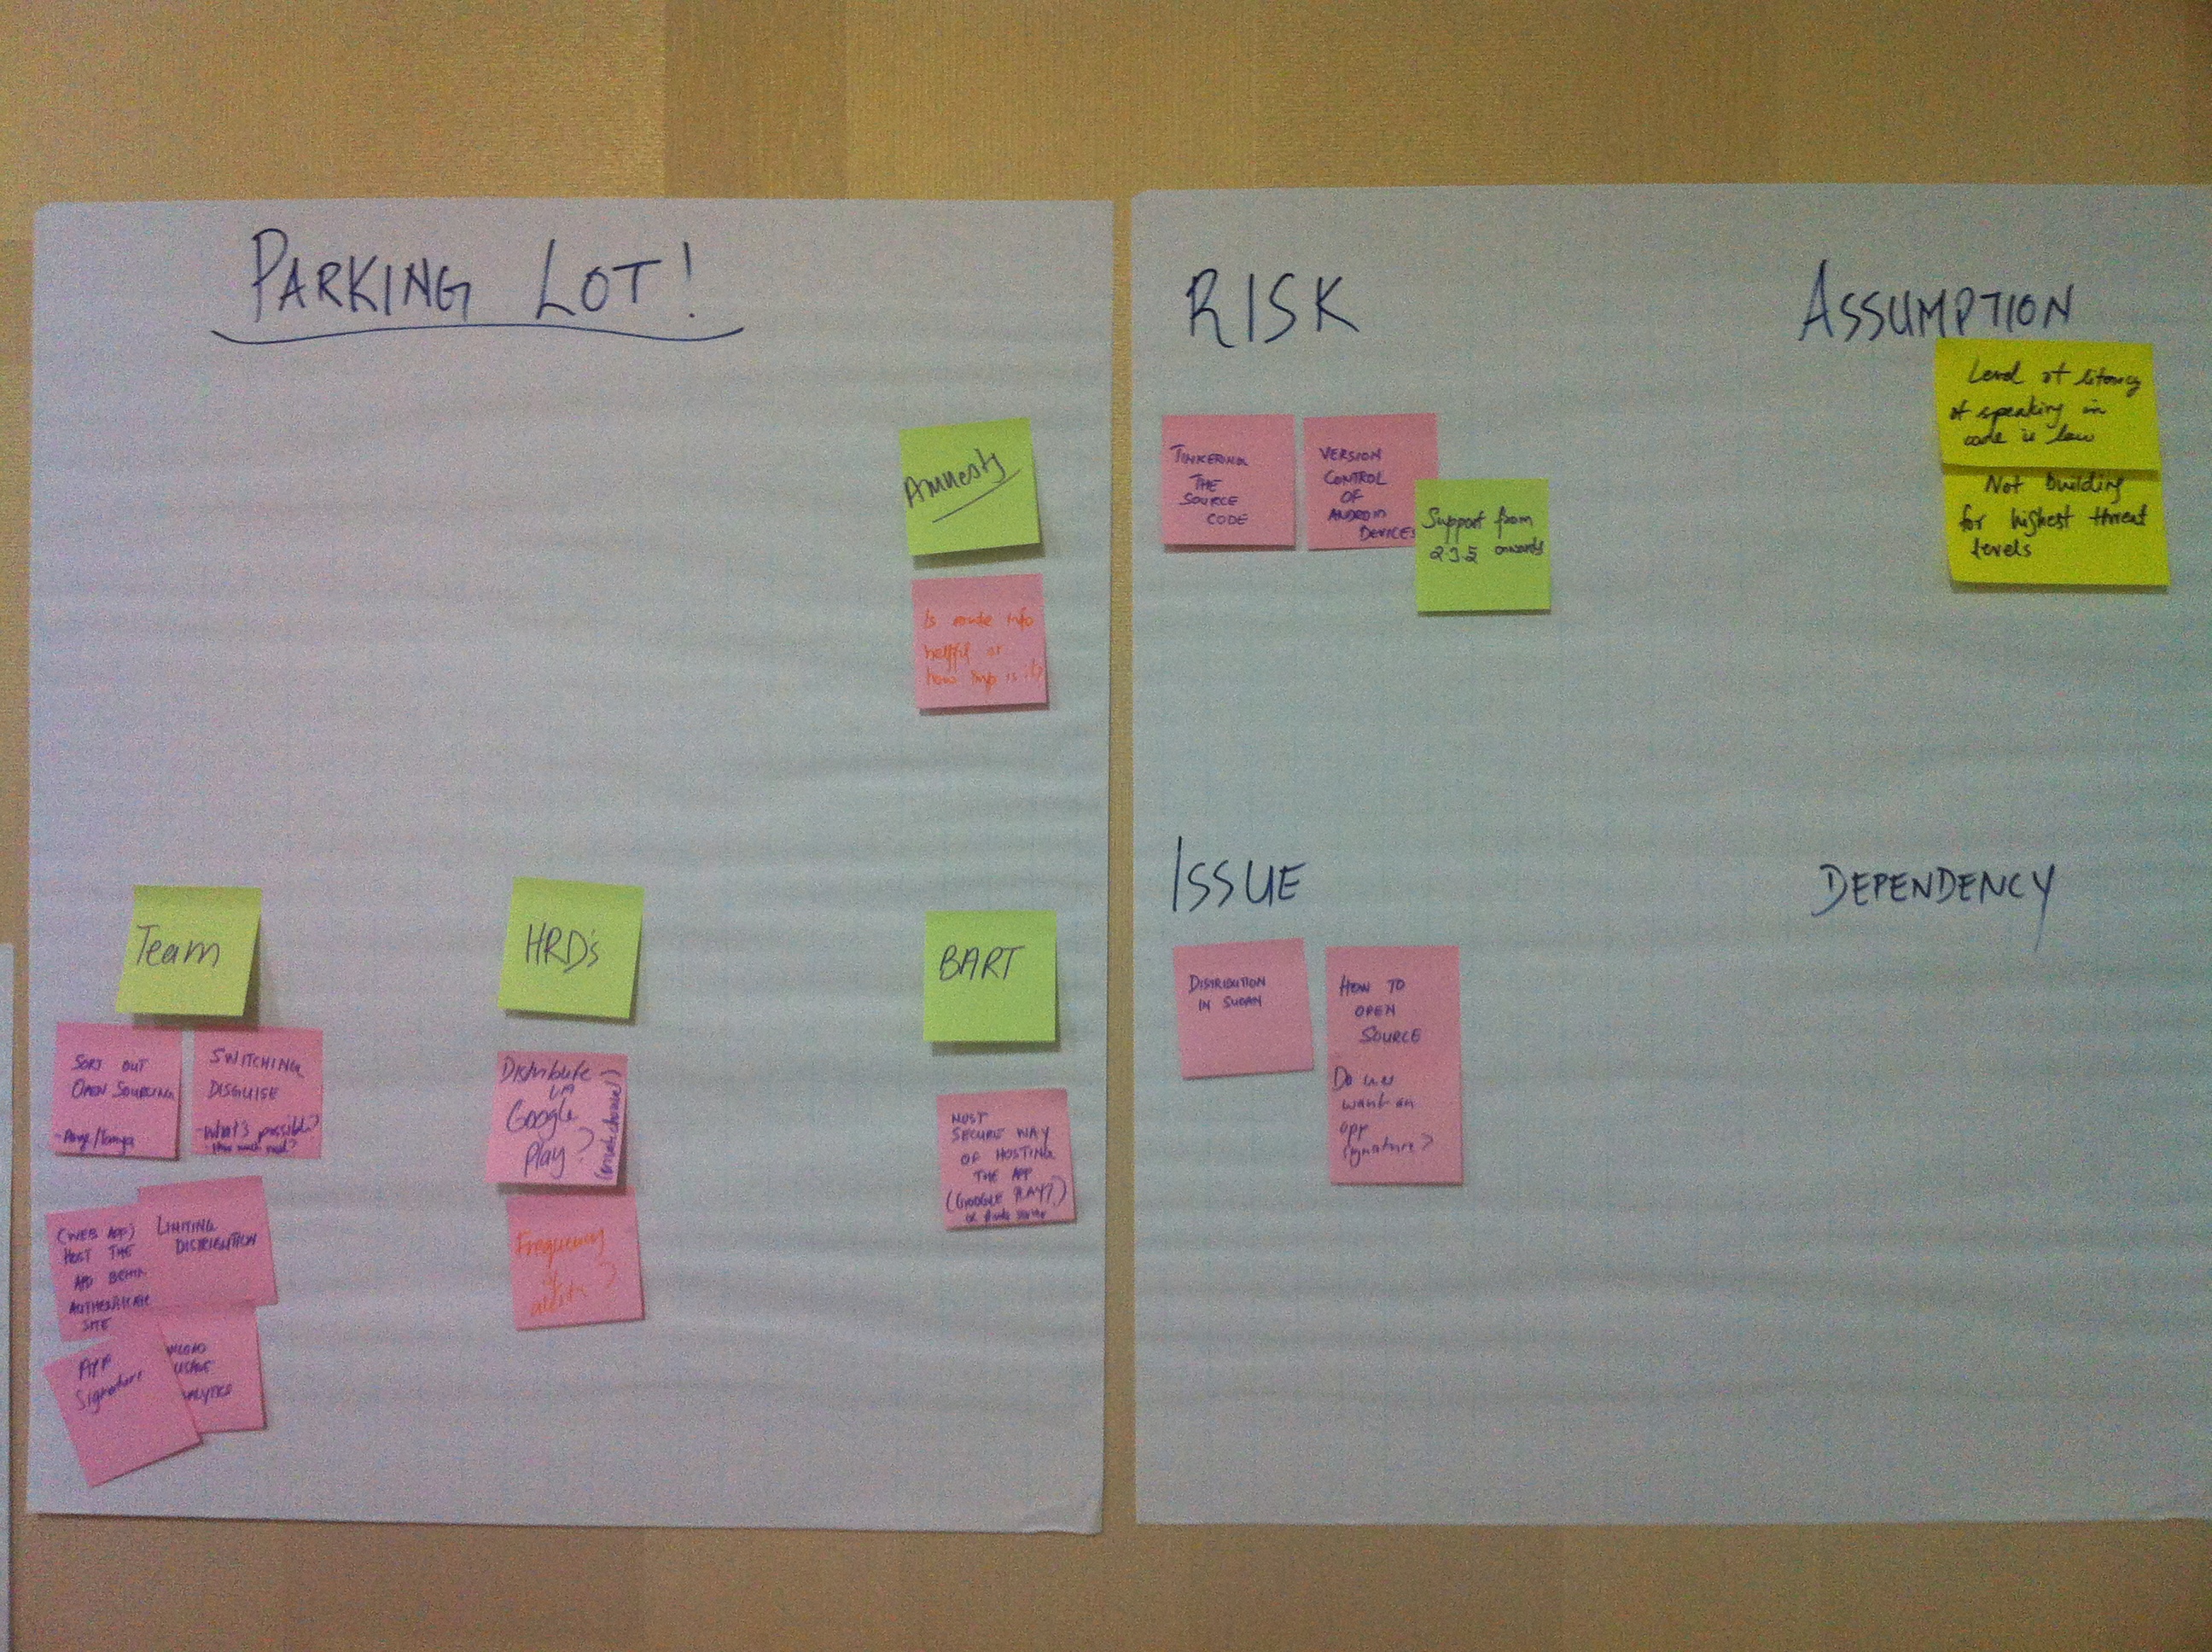 PARKING LOT!
Amnesty
Is route info
helpful or
how imp is it?
Team
SORT OUT
OPEN SOURCING
SWITCHING
DISGUISE
-What's possible?
How much need?
(WEB APP)
HOST THE
APP BEHIN
AUTHENTICATE
SITE
LIMITING
DISTRIBUTION
APP
Signature
USAGE
HRD's
Distribute
VIA
Google
Play?
Frequency
of
alerts?
BART
MOST
SECURE WAY
OF HOSTING
THE APP
(GOOGLE PLAY?)
or
RISK
TINKERING
THE
SOURCE
CODE
VERSION
CONTROL
OF
ANDROID
DEVICES
Support from
2.3.5 onwards
ASSUMPTION
Level of literacy
of speaking in
code is low
Not building
for highest threat
levels
ISSUE
DISTRIBUTION
IN SUDAN
HOW TO
OPEN
SOURCE
Do we
want an
app
signature?
DEPENDENCY